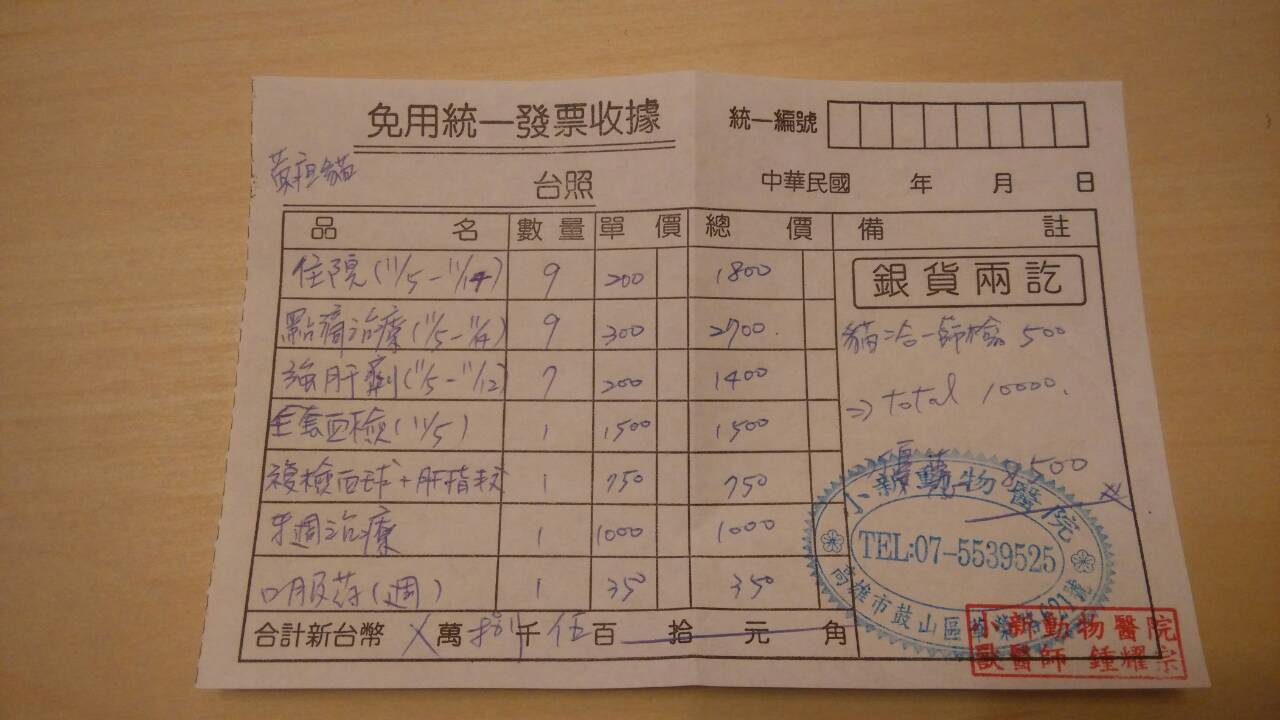 免用統一發票收據
統一編號
黃疸貓
台照
中華民國 年 月 日
品名 數量 單價 總價 備註
住院(11/5-11/14) 9 200 1800
銀貨兩訖
點滴治療(11/5-11/14) 9 300 2700
貓三合一篩檢 500
強肝劑(11/5-11/12) 7 200 1400
⇒ total 10000.
全套血檢(11/5) 1 1500 1500
複檢血球+肝指数 1 750 750
優待 8500
牙週治療 1 1000 1000
口服药(週) 1 350 350
合計新台幣 X 萬 捌 千 伍 百 拾 元 角
動物醫院
TEL:07-5539525
高雄市鼓山區
動物醫院
獸醫師 鍾耀宗